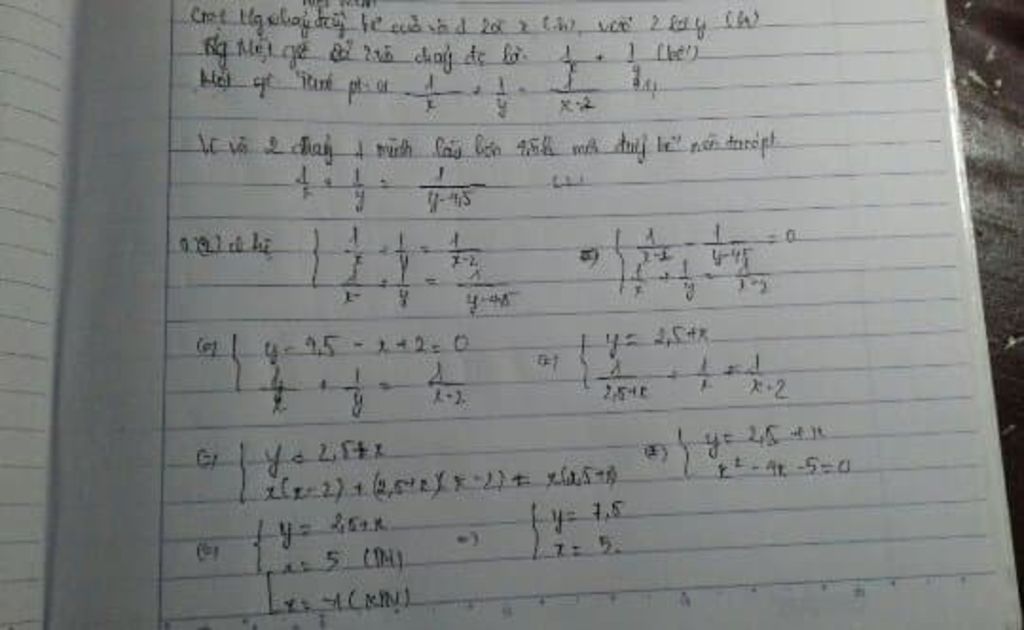 Gọi tg chảy đầy bể của vòi 1 là x (h), vòi 2 là y (h)
Trg một giờ cả 2 vòi chảy đc là: 1/x + 1/y (bể)
Một giờ pt: 1/x + 1/y = 1/(x-2) (1)
Vì vòi 2 chảy 1 mình lâu hơn 4,5h mới đầy bể nên ta có pt
1/x + 1/y = 1/(y-4,5) (2)
(2) có hệ { 1/x + 1/y = 1/(x-2) ; 1/x + 1/y = 1/(y-4,5) (=) { 1/(x-2) - 1/(y-4,5) = 0 ; 1/x + 1/y = 1/(x-2)
(=) { y - 4,5 - x + 2 = 0 ; 1/x + 1/y = 1/(x-2) (=) { y = 2,5+x ; 1/(2,5+x) + 1/x = 1/(x-2)
(=) { y = 2,5+x ; x(x-2) + (2,5+x)(x-2) = x(2,5+x) (=) { y = 2,5+x ; x² - 4x - 5 = 0
(=) { y = 2,5+x ; [ x = 5 (TM) =) { y = 7,5 ; x = 5
x = -1 (KTM)